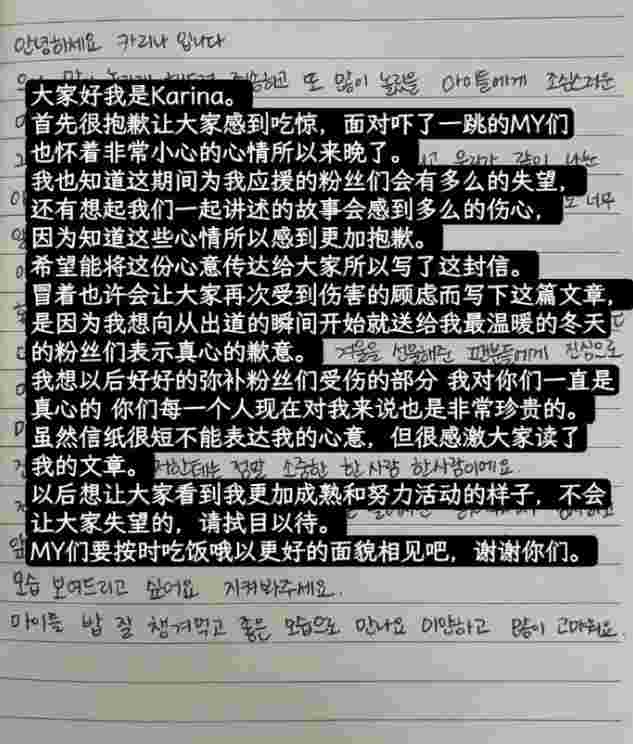 안녕하세요 카리나 입니다
많이 놀라게 해드려 죄송하고 또 많이 놀랐을 마이들에게 조심스러운
大家好我是Karina。
首先很抱歉让大家感到吃惊，面对吓了一跳的MY们
也怀着非常小心的心情所以来晚了。
우리가 같이 나눈
我也知道这期间为我应援的粉丝们会有多么的失望，
还有想起我们一起讲述的故事会感到多么的伤心，
너무
因为知道这些心情所以感到更加抱歉。
希望能将这份心意传达给大家所以写了这封信。
冒着也许会让大家再次受到伤害的顾虑而写下这篇文章，
是因为我想向从出道的瞬间开始就送给我最温暖的冬天
的粉丝们表示真心的歉意。 겨울을 선물해준 팬분들에게 진심으로
我想以后好好的弥补粉丝们受伤的部分 我对你们一直是
真心的 你们每一个人现在对我来说也是非常珍贵的。
虽然信纸很短不能表达我的心意，但很感激大家读了
我的文章。 저한테는 정말 소중한 한사람 한사람이에요.
以后想让大家看到我更加成熟和努力活动的样子，不会
让大家失望的，请拭目以待。
MY们要按时吃饭哦以更好的面貌相见吧，谢谢你们。
모습 보여드리고 싶어요 지켜봐주세요.
마이들 밥 잘 챙겨먹고 좋은 모습으로 만나요 미안하고 많이 고마워요.